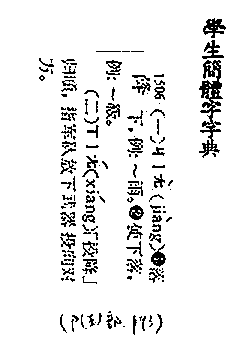 學生簡體字字典
1506 (一)ㄐㄧㄤˋ(jiàng)❶落
降 下,例:~雨。❷使下落,
例:~級。
(二)ㄒㄧㄤˊ(xiáng)「投降」
归顺,指军队放下武器投向对
方。